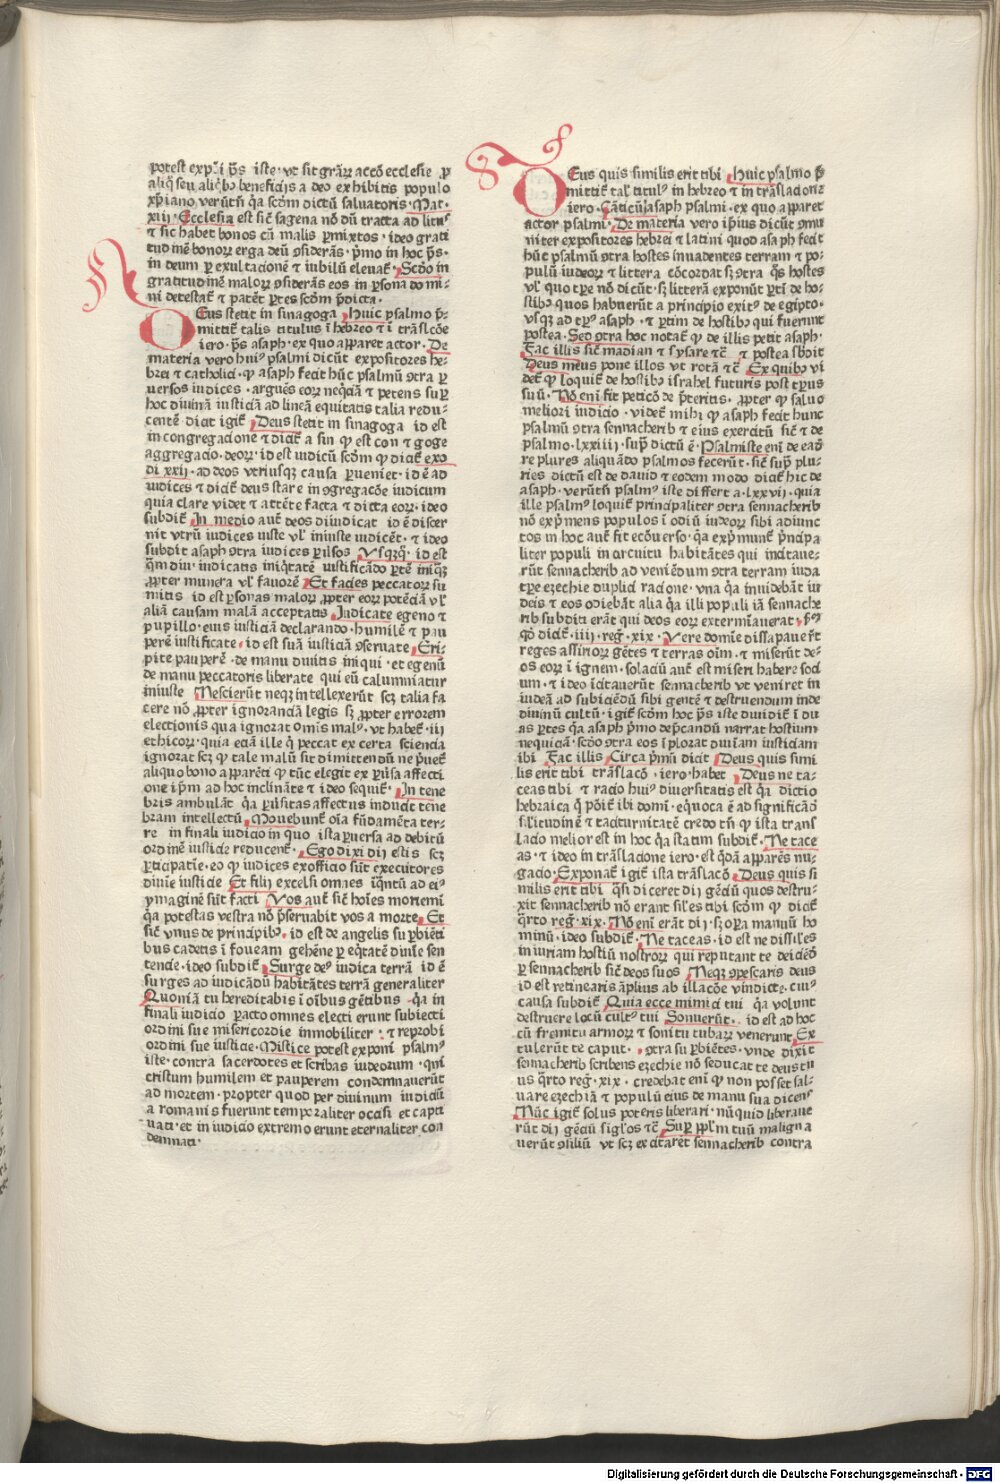 potest expo̅i p̅s iste·vt sit gr̅aꝝ acc̅o ecclesie ꝓ
aliq̅ seu aliq̅bꝰ beneficijs a deo exhibitis populo
xp̅iano verūtn̄ q̅a scd̅m dictū saluatoris·Mat·
xiij·Ecclesia est sic̄ sagena nō dū tracta ad litus
⁊ sic habet bonos cū malis p̱mixtos·ideo grati
tudinē bonoꝝ erga deū ꝯsiderās·p̄mo in hoc p̄s·
in deum p̱ exultacionē ⁊ iubilū eleuat̄·Scd̅o in
gratitudinē maloꝝ ꝯsiderās eos in p̱sona domi-
ni detestat̄ ⁊ patēt p̱tes scd̅m p̄dicta·
DEus stetit in sinagoga·Huic psalmo p̄-
mittit̄ talis titulus ī hebreo ⁊ ī trāslc̄oe
iero·p̄s asaph·ex quo apparet actor·De
materia vero huiꝰ psalmi dicūt expositores he-
brei ⁊ catholici·ꝙ asaph fecit hūc psalmū ꝯtra p̱
uersos iudices·arguēs eoꝝ neq̅ciā ⁊ petens sup̱
hoc diuinā iusticiā ad lineā equitatis talia redu-
centē·dicit igit̄·Deus stetit in sinagoga id est
in congregacione ⁊ dicit̄ a sin ꝙ est con ⁊ goge
aggregacio·deoꝝ·id est iudicū scd̅m ꝙ dicit̄ exo
di xxij·ad deos vtriusqꝫ causa p̱ueniet·id ē ad
iudices ⁊ dicit̄ deus stare in ꝯgregac̄oe iudicum
quia clare videt ⁊ attēte facta ⁊ dicta eoꝝ·ideo
subdit̄·In medio aut̄ deos diiudicat id ē discer
nit vtrū iudices iuste vl̄ iniuste iudicēt·⁊ ideo
subdit asaph ꝯtra iudices p̱uersos·Vsqꝫq̅·id est
q̅m diu·iudicatis iniq̅tatē iustificādo p̱tē iniq̅ꝫ
ꝓpter munera vl̄ fauorē·Et facies peccatoꝝ su
mitis id est p̱sonas maloꝝ ꝓpter eoꝝ potēciā vl̄
aliā causam malā acceptatis·Iudicate egeno ⁊
pupillo·eius iusticiā declarando·humilē ⁊ pau
perē iustificate·id est suā iusticiā ꝯseruate·Eri-
pite pauperē·de manu diuitis iniqui·et egenū
de manu peccatoris liberate qui eū calumniatur
iniuste Nescierūt neqꝫ intellexerūt scꝫ talia fa
cere nō ꝓpter ignoranciā legis sꝫ ꝓpter errorem
electionis qua ignorat omis malꝰ·vt habet̄·iij
ethicoꝝ·quia eciā ille q̅ peccat ex certa sciencia
ignorat scꝫ ꝙ tale malū sit dimittendū ne p̄uet̄
aliquo bono apparēti ꝙ tūc elegit ex p̱u̅sa affecti
one ip̅m ad hoc inclināte ⁊ ideo sequit̄·In tene
bris ambulāt q̅a p̱u̅sitas affectus inducit tene
bram intellectū·Mouebunt̄ oi̅a fūdamēta ter-
re in finali iudicio in quo ista p̱uersa ad debitū
ordinē iusticie reducent̄·Ego dixi dij estis scꝫ
p̱ticipatiē·eo ꝙ iudices exofficio sūt executores
diuīe iusticie Et filij excelsi omnes iq̅ntū ad eiꝰ
ymaginē sūt facti Vos aut̄ sic̄ hoīes moriemī
q̅a potestas vestra nō p̄seruabit vos a morte·Et
sic̄ vnus de principibꝰ·id est de angelis sup̱biēti
bus cadetis ī foueam gehēne p̱ eq̅tatē diuīe sen
tencie·ideo subdit̄·Surge deꝰ iudica terrā id ē
surges ad iudicādū habitātes terrā generaliter
Quoniā tu hereditabis ī oībus gētibus q̅a in
finali iudicio p̱acto omnes electi erunt subiecti
ordini sue misericordie inmobiliter·⁊ reprobi
ordini sue iusticie·Mistice potest exponi psalmꝰ
iste·contra sacerdotes et scribas iudeorum·qui
cristum humilem et pauperem condemnauerūt
ad mortem·propter quod per diuinum iudiciū
a romanis fuerunt temporaliter occisi et capti
uati·et in iudicio extremo erunt eternaliter con
demnati·
DEus quis similis erit tibi Huic psalmo p̄
mittit̄ tal̄ titulꝰ in hebreo ⁊ in trāslacione
iero·Cāticū asaph psalmi·ex quo apparet
actor psalmi·De materia vero ip̱ius dicūt ꝯmu
niter expositores hebrei ⁊ latini quod asaph fecit
hūc psalmū ꝯtra hostes inuadentes terram ⁊ po-
pulū iudeoꝝ ⁊ littera cōcordat sꝫ ꝯtra q̅s hostes
vl̄ quo tp̱e nō dicūt·sꝫ litterā exponūt p̱ti̅ de ho-
stibꝰ quos habuerūt a principio exitꝰ de egipto·
vsqꝫ ad tp̱ꝰ asaph·⁊ p̱tim de hostibꝰ qui fuerunt
postea·Sed ꝯtra hoc notat̄ ꝙ de illis petit asaph·
Fac illis sic̄ madian ⁊ sysare ⁊c̄ ⁊ postea sb̅dit
Deus meus pone illos vt rotā ⁊c̄ Ex quibꝰ vi
det̄ ꝙ loquit̄ de hostibꝰ israhel futuris post tp̱us
suū·Nō eni̅ fit petic̄o de p̄teritis·ꝓpter ꝙ saluo
meliori iudicio·videt̄ mihi ꝙ asaph fecit hunc
psalmū ꝯtra sennacherib ⁊ eius exercitū sic̄ ⁊ de
psalmo·lxxiiij·sup̄ dictū ē·Psalmiste eni̅ de eadē
re plures aliquādo psalmos fecerūt·sic̄ sup̄ plu-
ries dictū est de dauid ⁊ eodem modo dicit̄ hic de
asaph·verūtn̄ psalmꝰ iste differt a·lxxvij·quia
ille psalmꝰ loquit̄ principaliter ꝯtra sennacherib
nō exp̄mens populos ī odiū iudeoꝝ sibi adiunc
tos in hoc aut̄ fit ecōuerso·q̅a exp̄munt̄ p̄ncipa
liter populi in circuitu habitātes qui incitaue-
rūt sennacherib ad veniēdum ꝯtra terram iuda
tp̱e ezechie duplici racione·vna q̅a inuidebāt iu
deis ⁊ eos odiebāt alia q̅a illi populi iā sennache
rib subditi erāt qui deos eoꝝ extermīauerat·s̅m
qd̅ dicit̄·iiij·reg̅·xix·Vere domīe dissapauer̄t
reges assirioꝝ gētes ⁊ terras oi̅m·⁊ miserūt de-
os eoꝝ ī ignem·solaciū aut̄ est miseri habere soci
um·⁊ ideo īcitauerūt sennacherib vt veniret in
iudeā ad subiciēdū sibi gentē ⁊ destruendum inde
diuinū cultū·igit̄ scd̅m hoc p̄s iste diuidit̄ ī du
as p̱tes q̅a asaph p̄mo dep̱candū narrat hostium
nequiciā·scd̅o ꝯtra eos īplorat diuīam iusticiam
ibi Fac illis Circa p̄mū dicit Deus quis simi
lis erit tibi trāslac̄o·iero·habet Deus ne ta-
ceas tibi ⁊ racio huiꝰ diuersitatis est q̅a dictio
hebraica q̅ pōit̄ ibi domi·equoca ē ad significādā
sil̅itudinē ⁊ taciturnitatē credo tn̄ ꝙ ista trans
lacio melior est in hoc q̅a statim subdit̄·Ne tace
as·⁊ ideo in trāslacione iero·est q̅dā apparēs nu-
gacio·Exponat̄ igit̄ ista trāslac̄o·Deus quis si
milis erit tibi q̅si diceret dij gēciū quos destru-
xit sennacherib nō erant sil̅es tibi scd̅m ꝙ dicit̄
q̅rto reg̅·xix·Nō eni̅ erāt dij·sꝫ opa manuū ho
minū·ideo subdit̄·Ne taceas·id est ne dissil̅es
iniuriam hostiū nostroꝝ qui reputant te deiciēdū
p̱ sennacherib sic̄ deos suos Neqꝫ ꝯpescaris deus
id est retinearis āplius ab illac̄oe vindicte·cuiꝰ
causa subdit̄ Quia ecce inimici tui q̅a volunt
destruere locū cultꝰ tui Sonuerūt·id est ad hoc
cū fremitu armoꝝ ⁊ sonitu tubaꝝ venerunt Ex
tulerūt te caput·ꝯtra sup̱biētes·vnde dixit
sennacherib scribens ezechie nō seducat te deus tu
us q̅rto reg̅·xix·credebat eni̅ ꝙ non posset sal-
uare ezechiā ⁊ populū eius de manu sua dicens
Nūc igit̄ solus poteris liberari·nūquid liberaue
rūt dij gēciū sigl̅os ⁊c̄ Sup̱ ppl̅m tuū maligna
uerūt ꝯsiliū vt scꝫ excitaret sennacherib contra
Digitalisierung gefördert durch die Deutsche Forschungsgemeinschaft - DFG